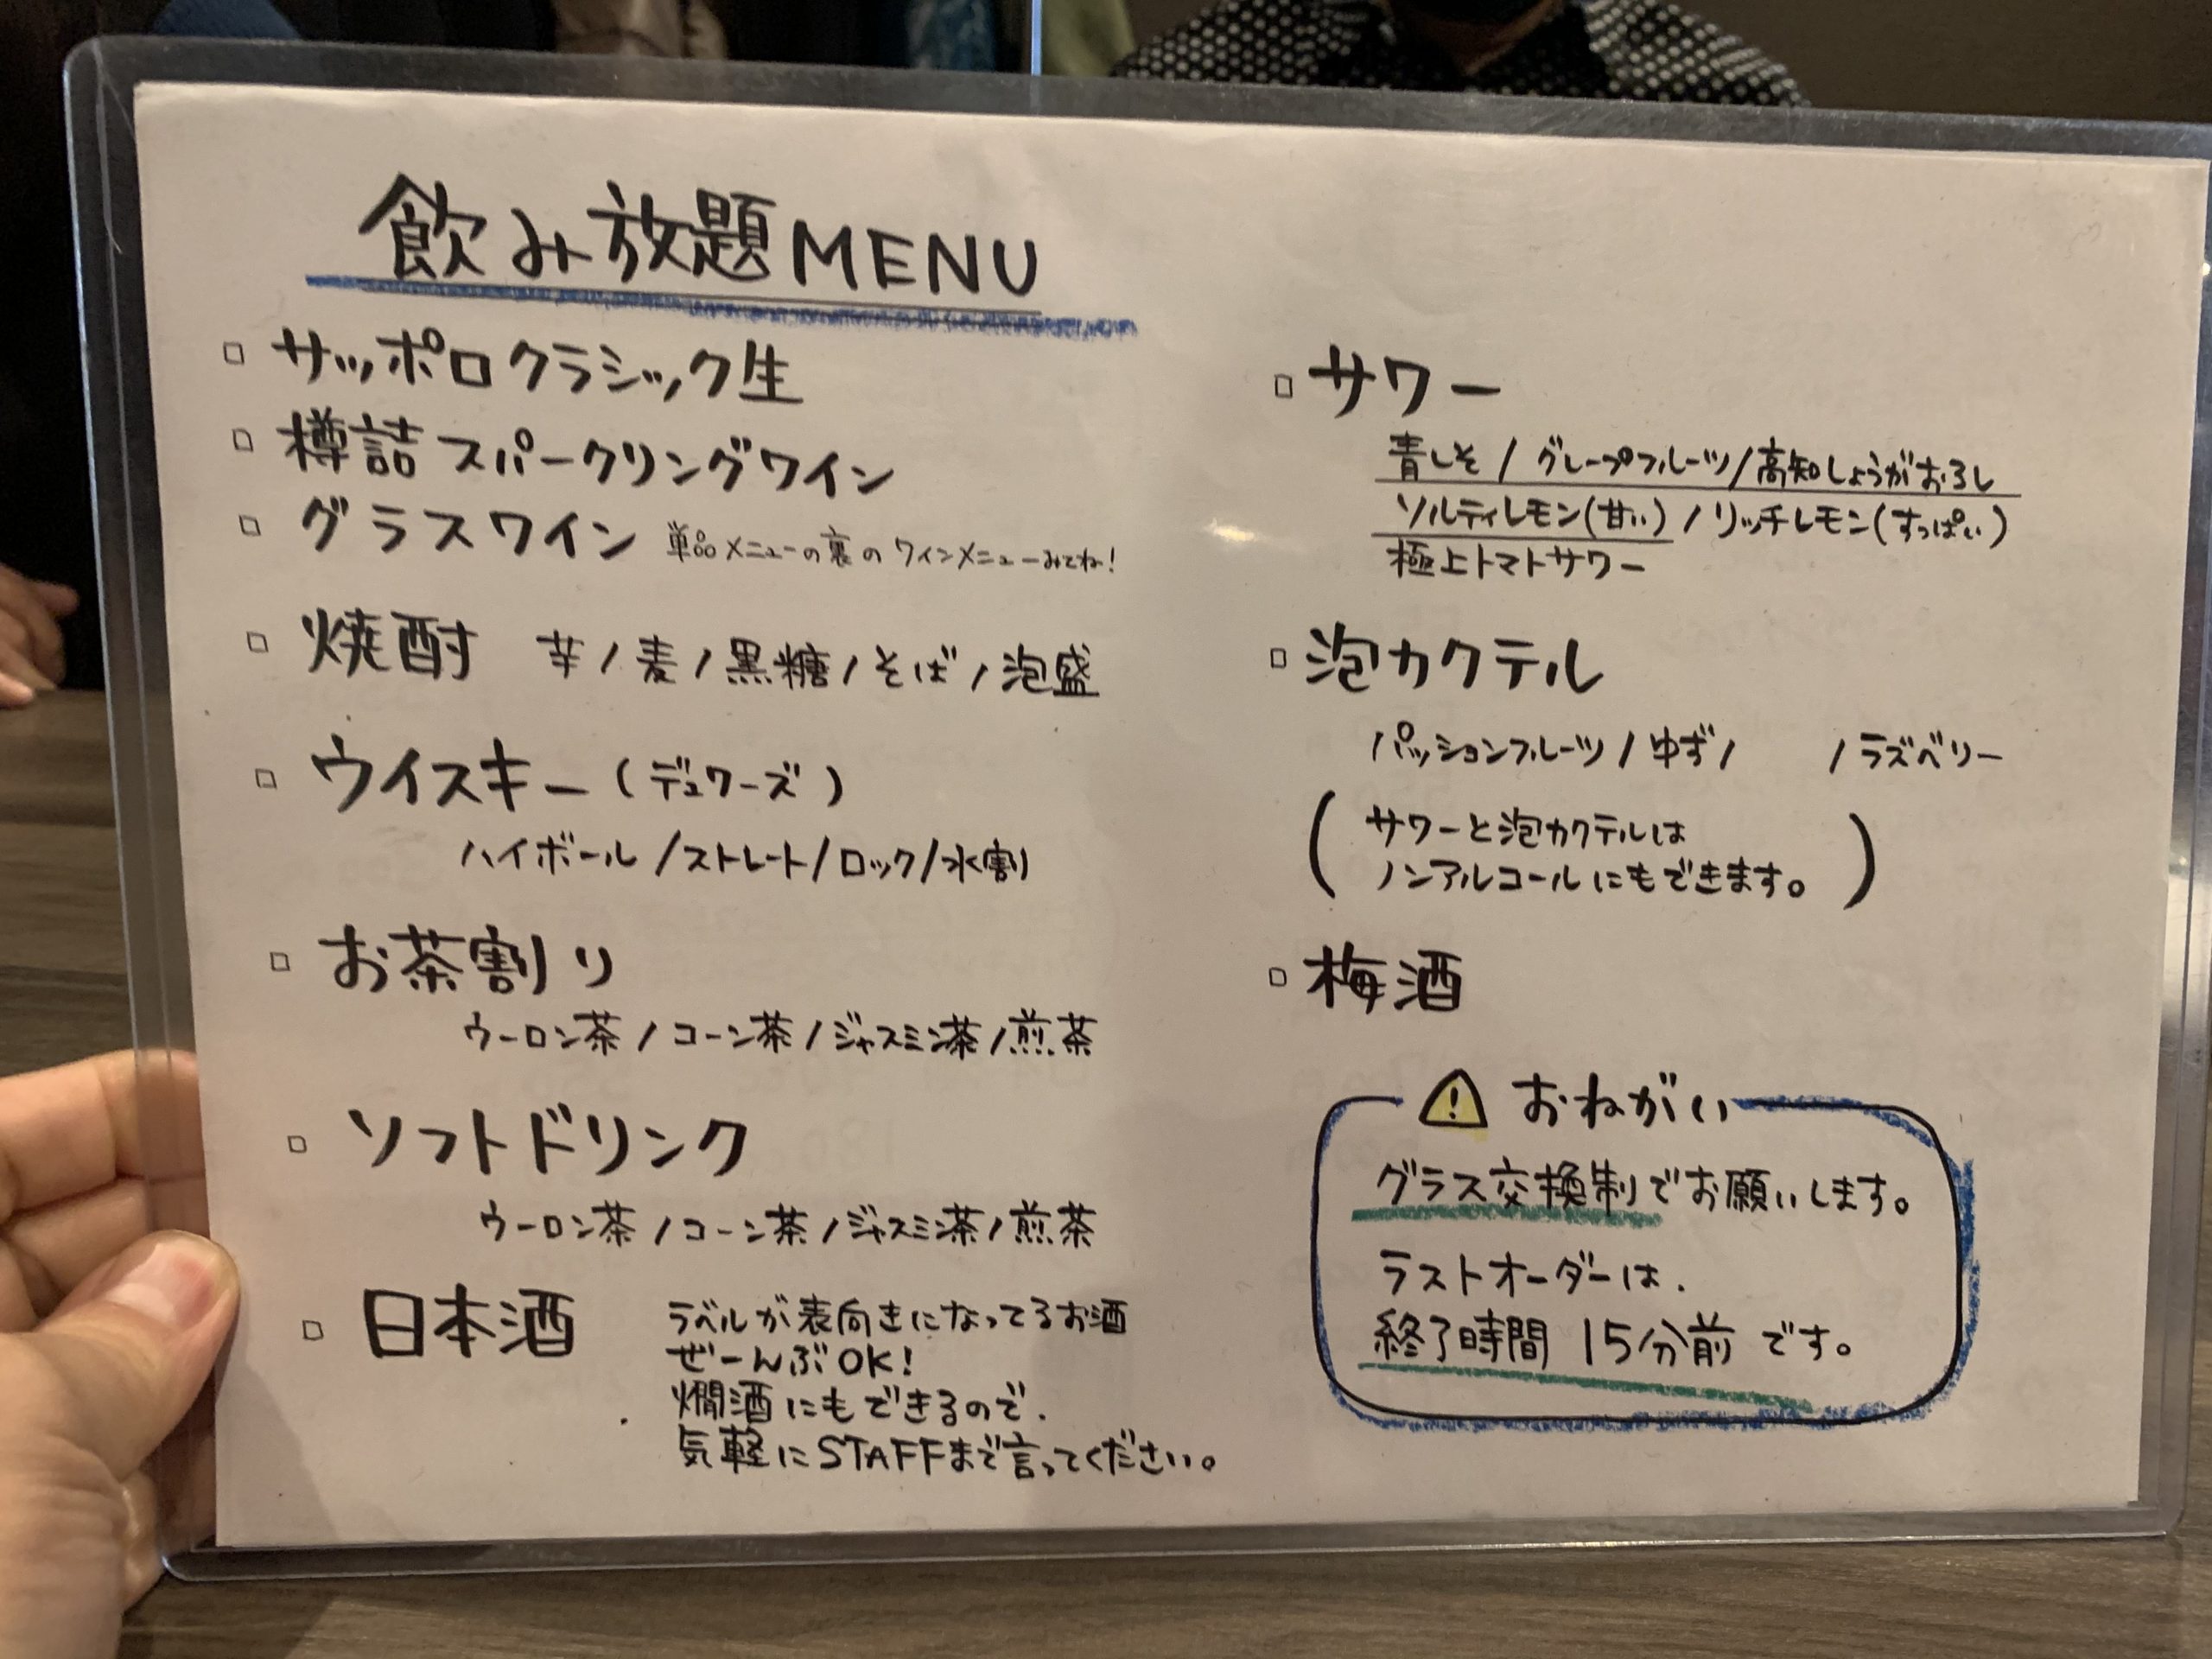 飲み放題MENU
□ サッポロクラシック生
□ 樽詰スパークリングワイン
□ グラスワイン 単品メニューの裏のワインメニューみてね!
□ 焼酎 芋/麦/黒糖/そば/泡盛
□ ウイスキー(デュワーズ)
ハイボール/ストレート/ロック/水割
□ お茶割り
ウーロン茶/コーン茶/ジャスミン茶/煎茶
□ ソフトドリンク
ウーロン茶/コーン茶/ジャスミン茶/煎茶
□ 日本酒 ラベルが表向きになってるお酒
ぜーんぶOK!
燗酒にもできるので、
気軽にSTAFFまで言ってください。
□ サワー
青しそ/グレープフルーツ/高知しょうがおろし
ソルティレモン(甘い)/リッチレモン(すっぱい)
極上トマトサワー
□ 泡カクテル
パッションフルーツ/ゆず/ /ラズベリー
(サワーと泡カクテルは
ノンアルコールにもできます。)
□ 梅酒
⚠ おねがい
グラス交換制でお願いします。
ラストオーダーは、
終了時間 15分前です。